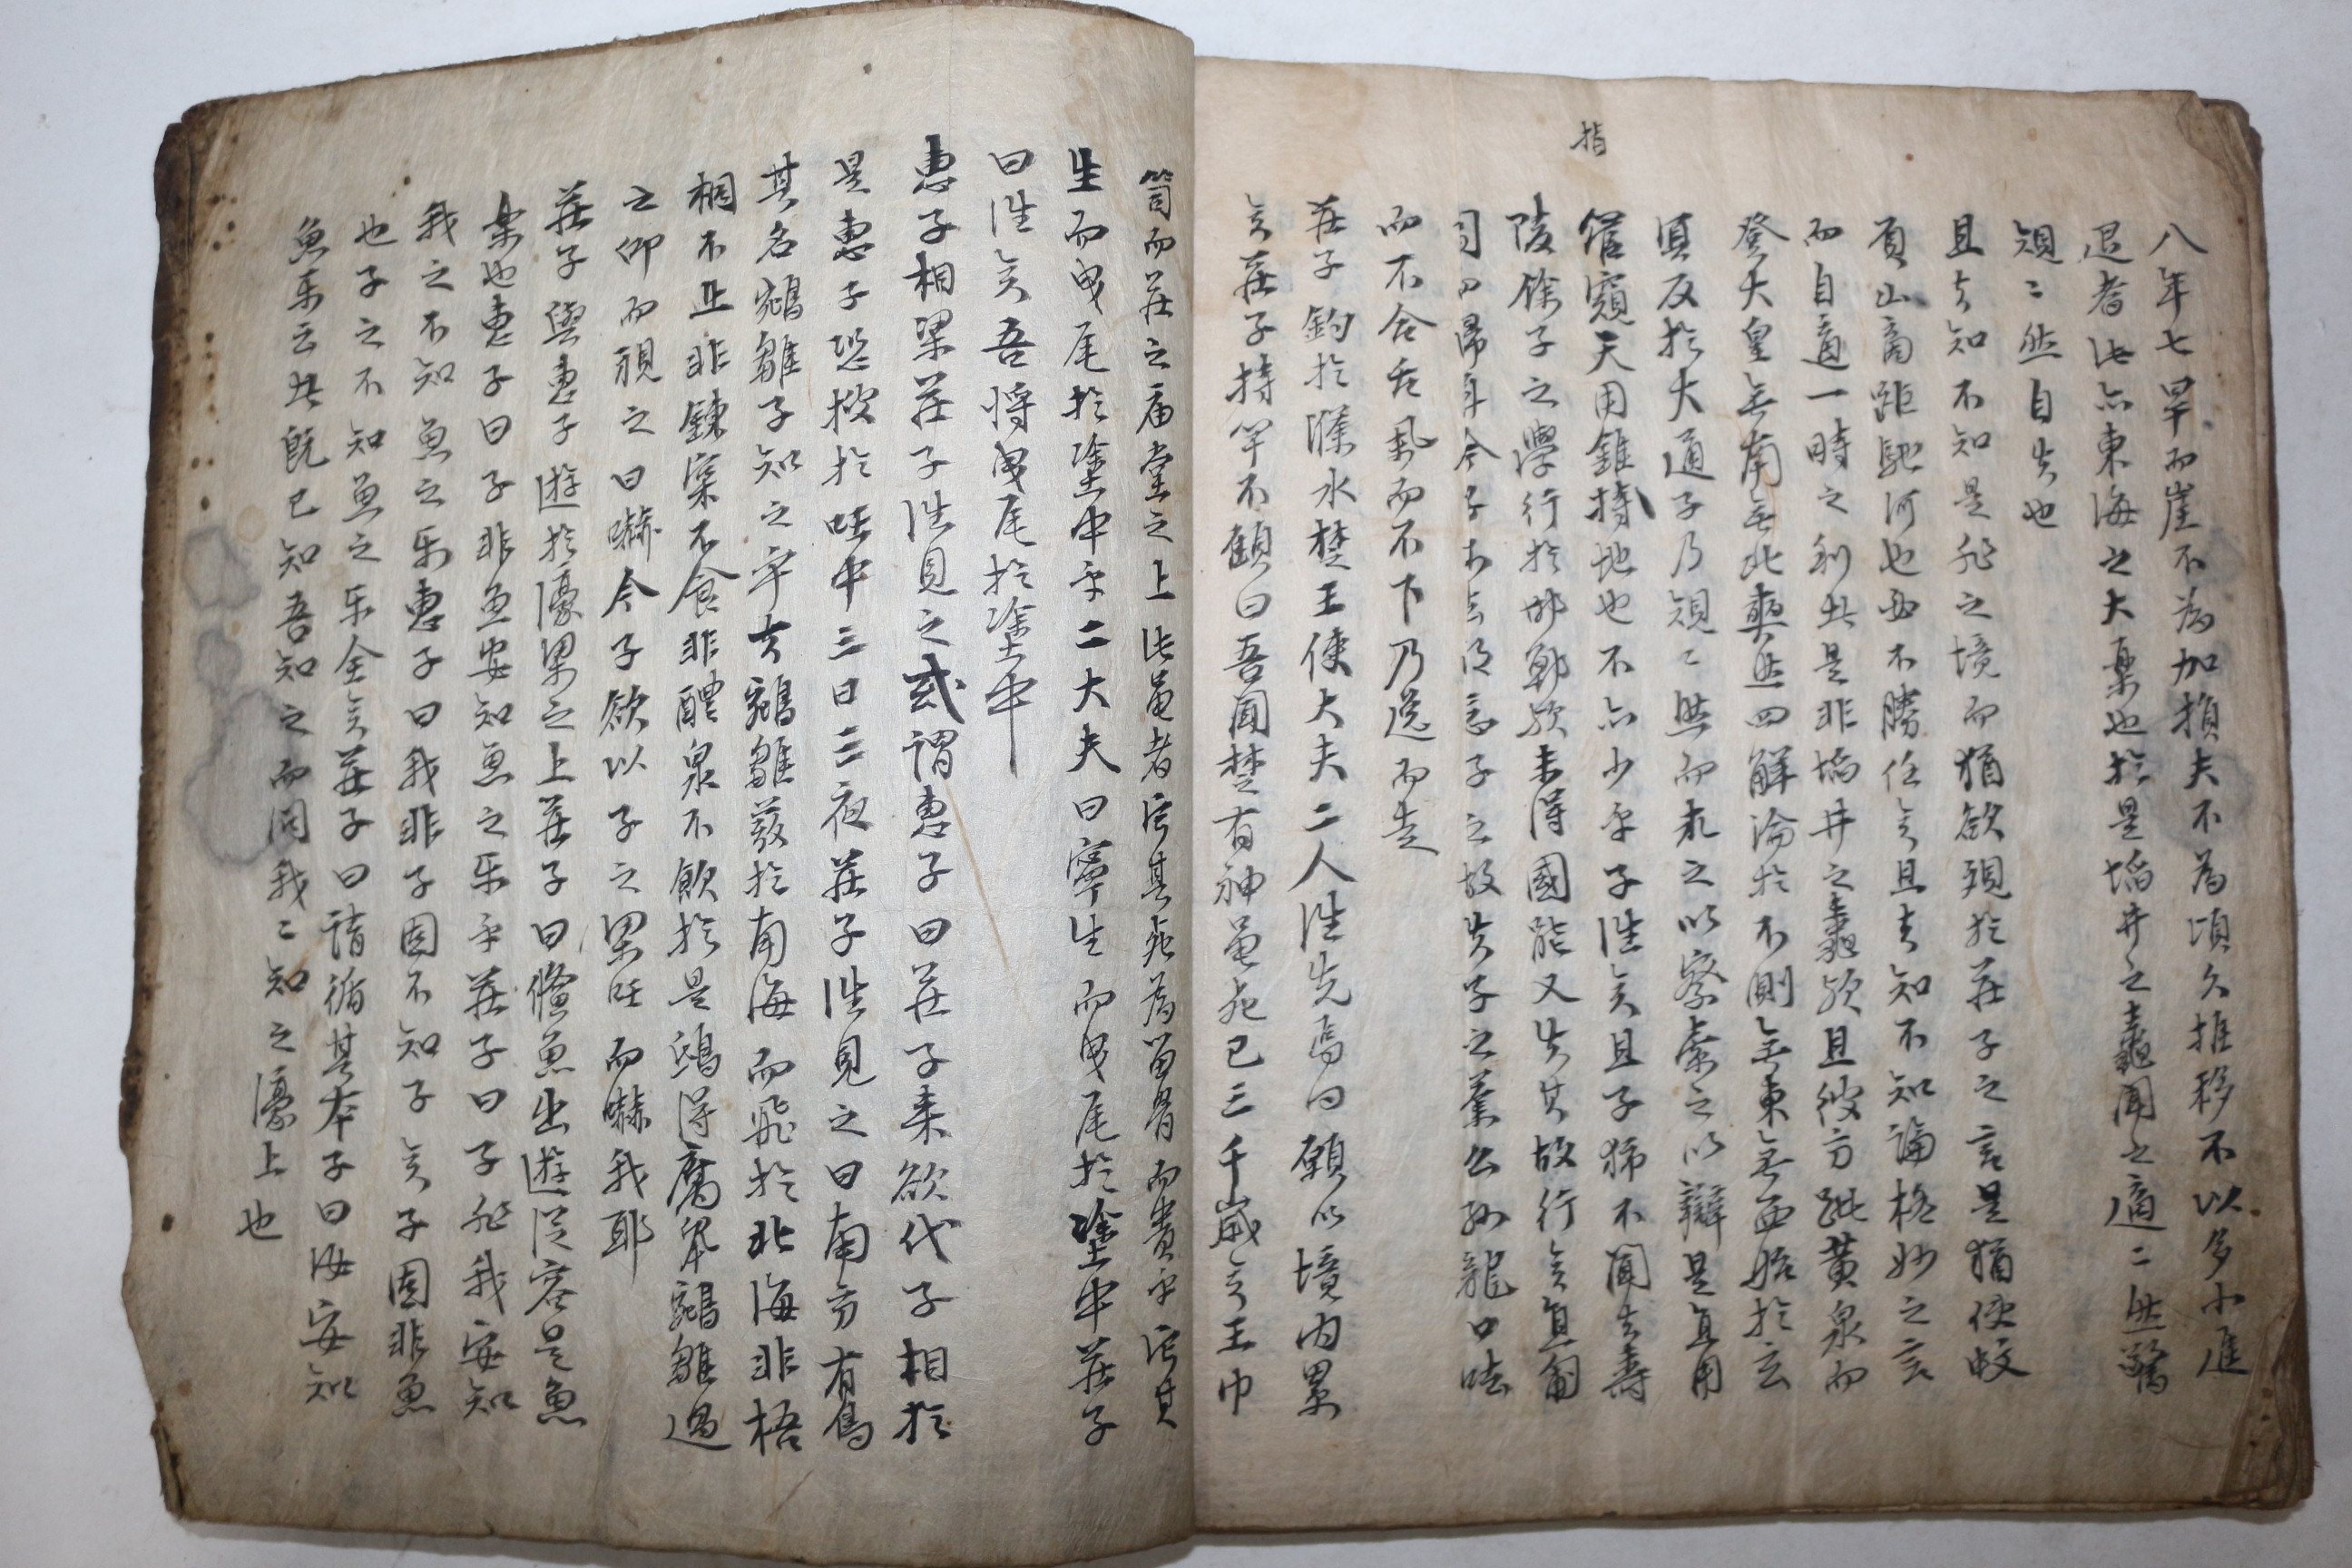 指
八年七旱而崖不為加損夫不為頃久推移不以多小進
退者此亦東海之大樂也於是埳井之鼃聞之適〻然驚
䂓〻然自失也
且夫知不知是非之境而猶欲覌於莊子之言是猶使蚊
負山商距馳河也必不勝任矣且夫知不知論極妙之言
而自適一時之利者是非埳井之鼃欤且彼方跐黃泉而
登大皇無南無北奭然四解淪於不測無東無西始於玄
冥反於大通子乃䂓〻然而求之以察索之以辯是直用
管窺天用錐指地也不亦少乎子往矣且子獨不聞夫壽
陵餘子之學行於邯鄲欤未得國能又失其故行矣直匍
匐而歸耳今子不去將忘子之故失子之業公孫龍口呿
而不合舌擧而不下乃逸而走
莊子釣於濮水楚王使大夫二人往先焉曰願以境內累
矣莊子持竿不顧曰吾聞楚有神龜死已三千歲矣王巾
笥而莊之庙堂之上此龜者寧其死為留骨而貴乎寧其
生而曳尾於塗中乎二大夫曰寧生而曳尾於塗中莊子
曰往矣吾將曳尾於塗中
惠子相梁莊子往見之或謂惠子曰莊子来欲代子相於
是惠子恐搜於国中三日三夜莊子往見之曰南方有鳥
其名鵷雛子知之乎夫鵷雛發於南海而飛於北海非梧
桐不止非鍊宲不食非醴泉不飲於是鴟得腐鼠鵷雛過
之仰而視之曰嚇今子欲以子之梁国而嚇我耶
莊子與惠子遊於濠梁之上莊子曰鯈魚出遊從容是魚
樂也惠子曰子非魚安知魚之乐乎莊子曰子非我安知
我之不知魚之乐惠子曰我非子固不知子矣子固非魚
也子之不知魚之乐全矣莊子曰請循其本子曰汝安知
魚乐云者既已知吾知之而问我〻知之濠上也